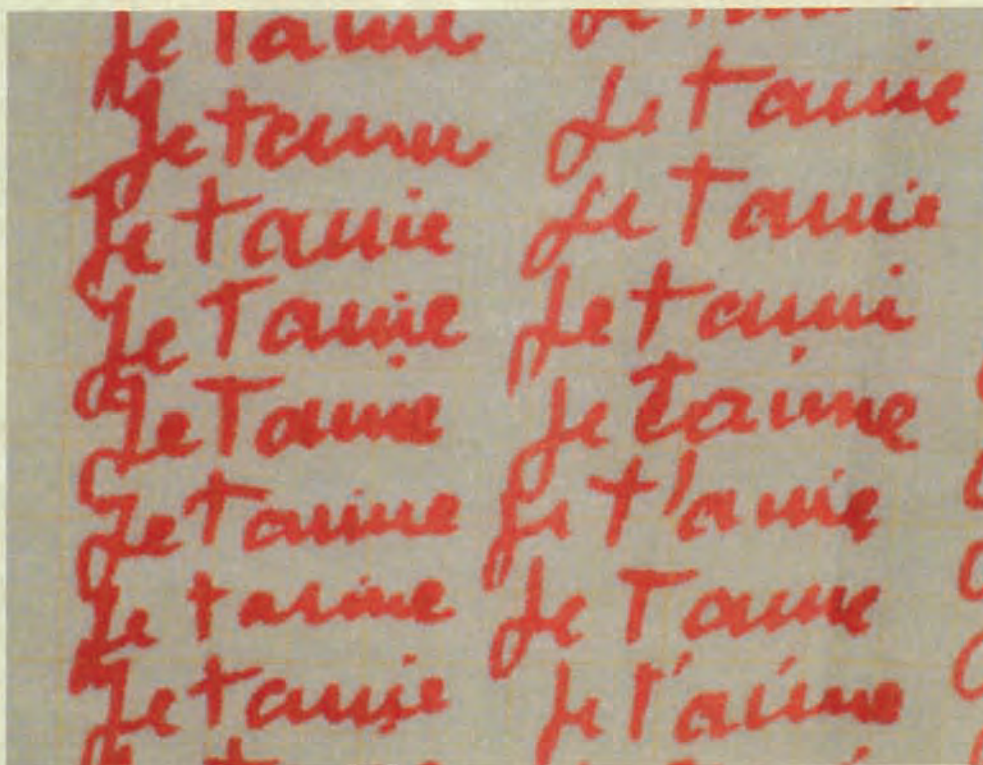 Je t aime
Je t aime Je t aime
Je t aime Je t aime
Je T aime Je t aime
Je T aime Je t aime
Je t aime Je t'aime
Je t aime Je T aime
Je t aime Je t'aime